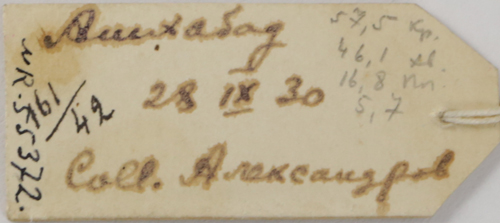 Ашхабад
28 IX 30
Coll. Александров
57,5 кр.
46,1 хв.
16,8 пл.
5,7
NR. 5К5372.
19/62